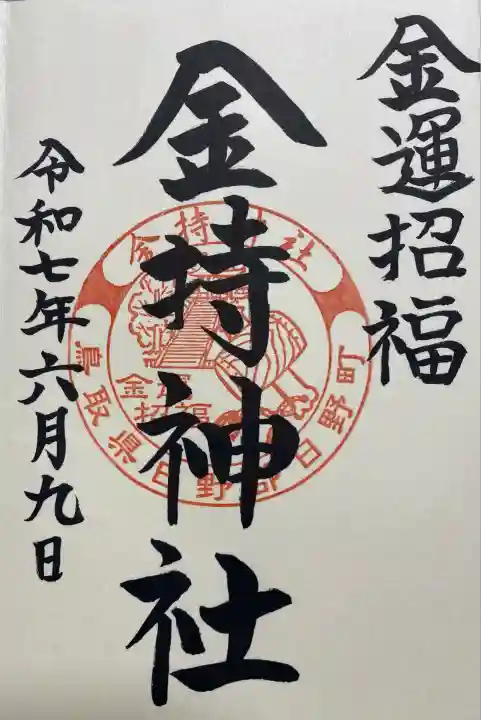 金運招福
金持神社
令和七年六月九日
金持神社
金運
招福
鳥取県日野郡日野町